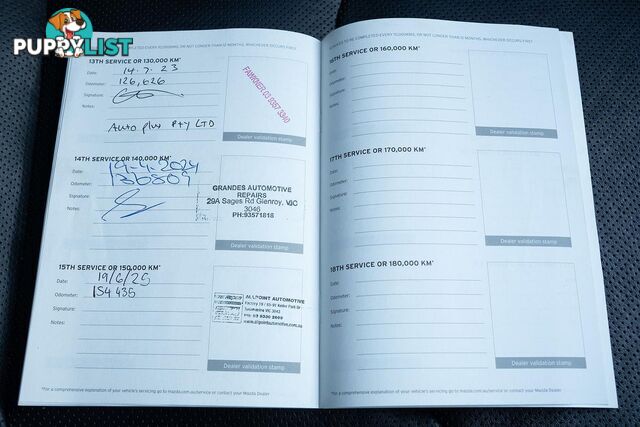 PUPPYLIST
TO BE COMPLETED EVERY 10,000KMS, OR NOT LONGER THAN 12 MONTHS, WHICHEVER OCCURS FIRST
13TH SERVICE OR 130,000 KM*
Date: 14.7.23
126,626
Signature:
Notes:
Auto plus Pty LTD
03 9357 3340
Dealer validation stamp
14TH SERVICE OR 140,000 KM*
Date:
Odometer: 136809
Signature:
Notes:
GRANDES AUTOMOTIVE
REPAIRS
29A Sages Rd Glenroy, VIC
3046
PH:93571818
Dealer validation stamp
15TH SERVICE OR 150,000 KM*
Date: 19/6/25
Odometer: 154 435
Signature:
Notes:
ALLPOINT AUTOMOTIVE
Tullamarine VIC 3043
www.allpointautomotive.com.au
Dealer validation stamp
*For a comprehensive explanation of your vehicle's servicing go to mazda.com.au/service or contact your Mazda Dealer
TO BE COMPLETED EVERY 10,000KMS, OR NOT LONGER THAN 12 MONTHS, WHICHEVER OCCURS FIRST
16TH SERVICE OR 160,000 KM*
Date:
Odometer:
Signature:
Notes:
Dealer validation stamp
17TH SERVICE OR 170,000 KM*
Date:
Odometer:
Signature:
Notes:
Dealer validation stamp
18TH SERVICE OR 180,000 KM*
Date:
Odometer:
Signature:
Notes:
Dealer validation stamp
*For a comprehensive explanation of your vehicle's servicing go to mazda.com.au/service or contact your Mazda Dealer